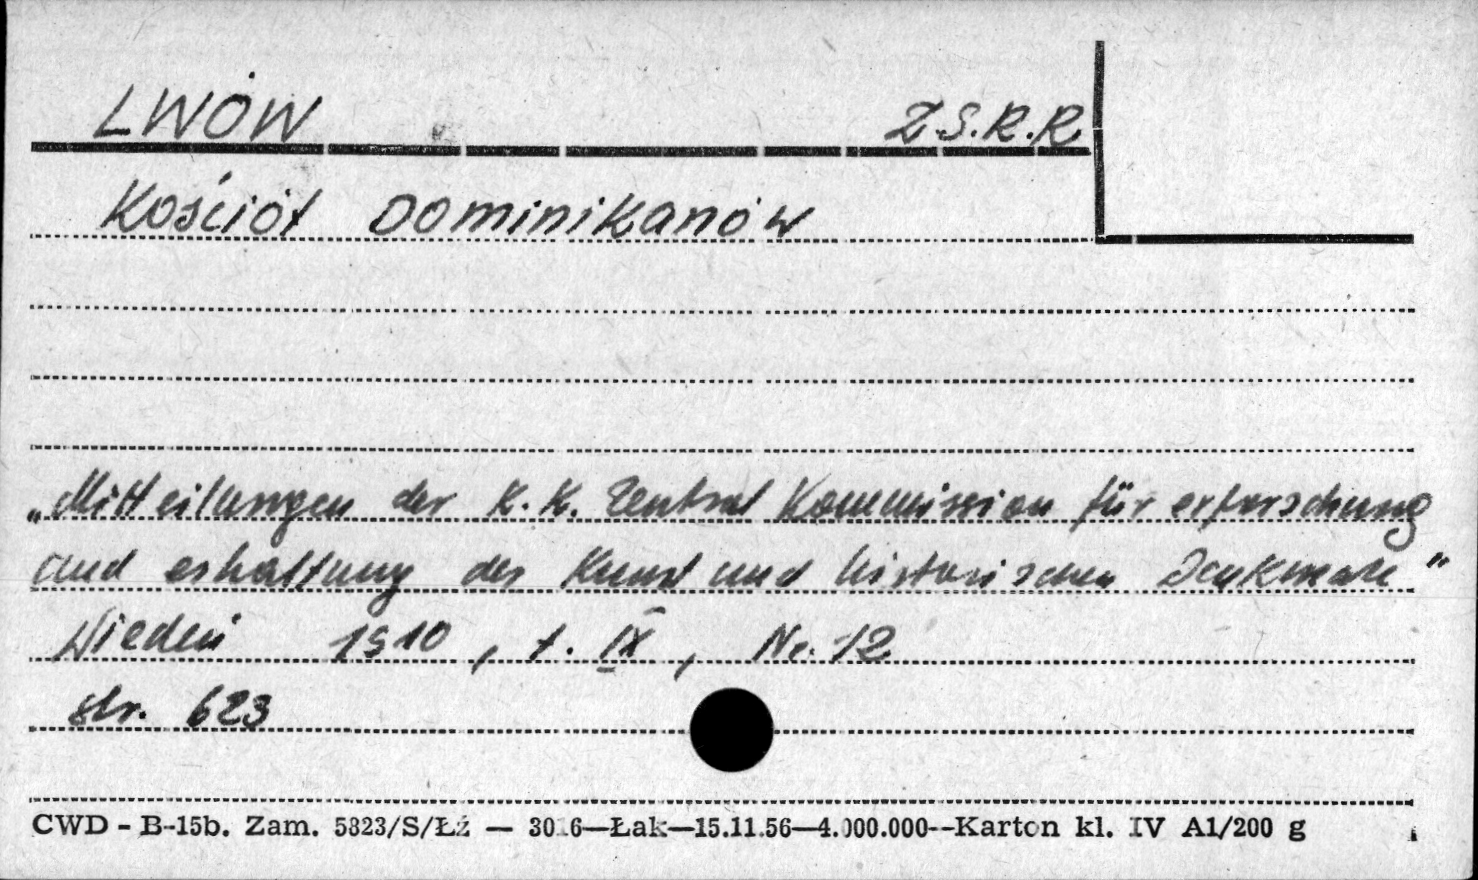 LWÓW Z.S.R.R
Kościół Dominikanów
„Mitteilungen der K.K. Zentral Kommission für erforschung
und erhaltung der Kunst und historischen Denkmale"
Wiedeń 1910, t. IX, Nr. 12
str. 623
CWD - B-15b. Zam. 5823/S/Łź — 3016—Łak—15.11.56—4.000.000--Karton kl. IV A1/200 g